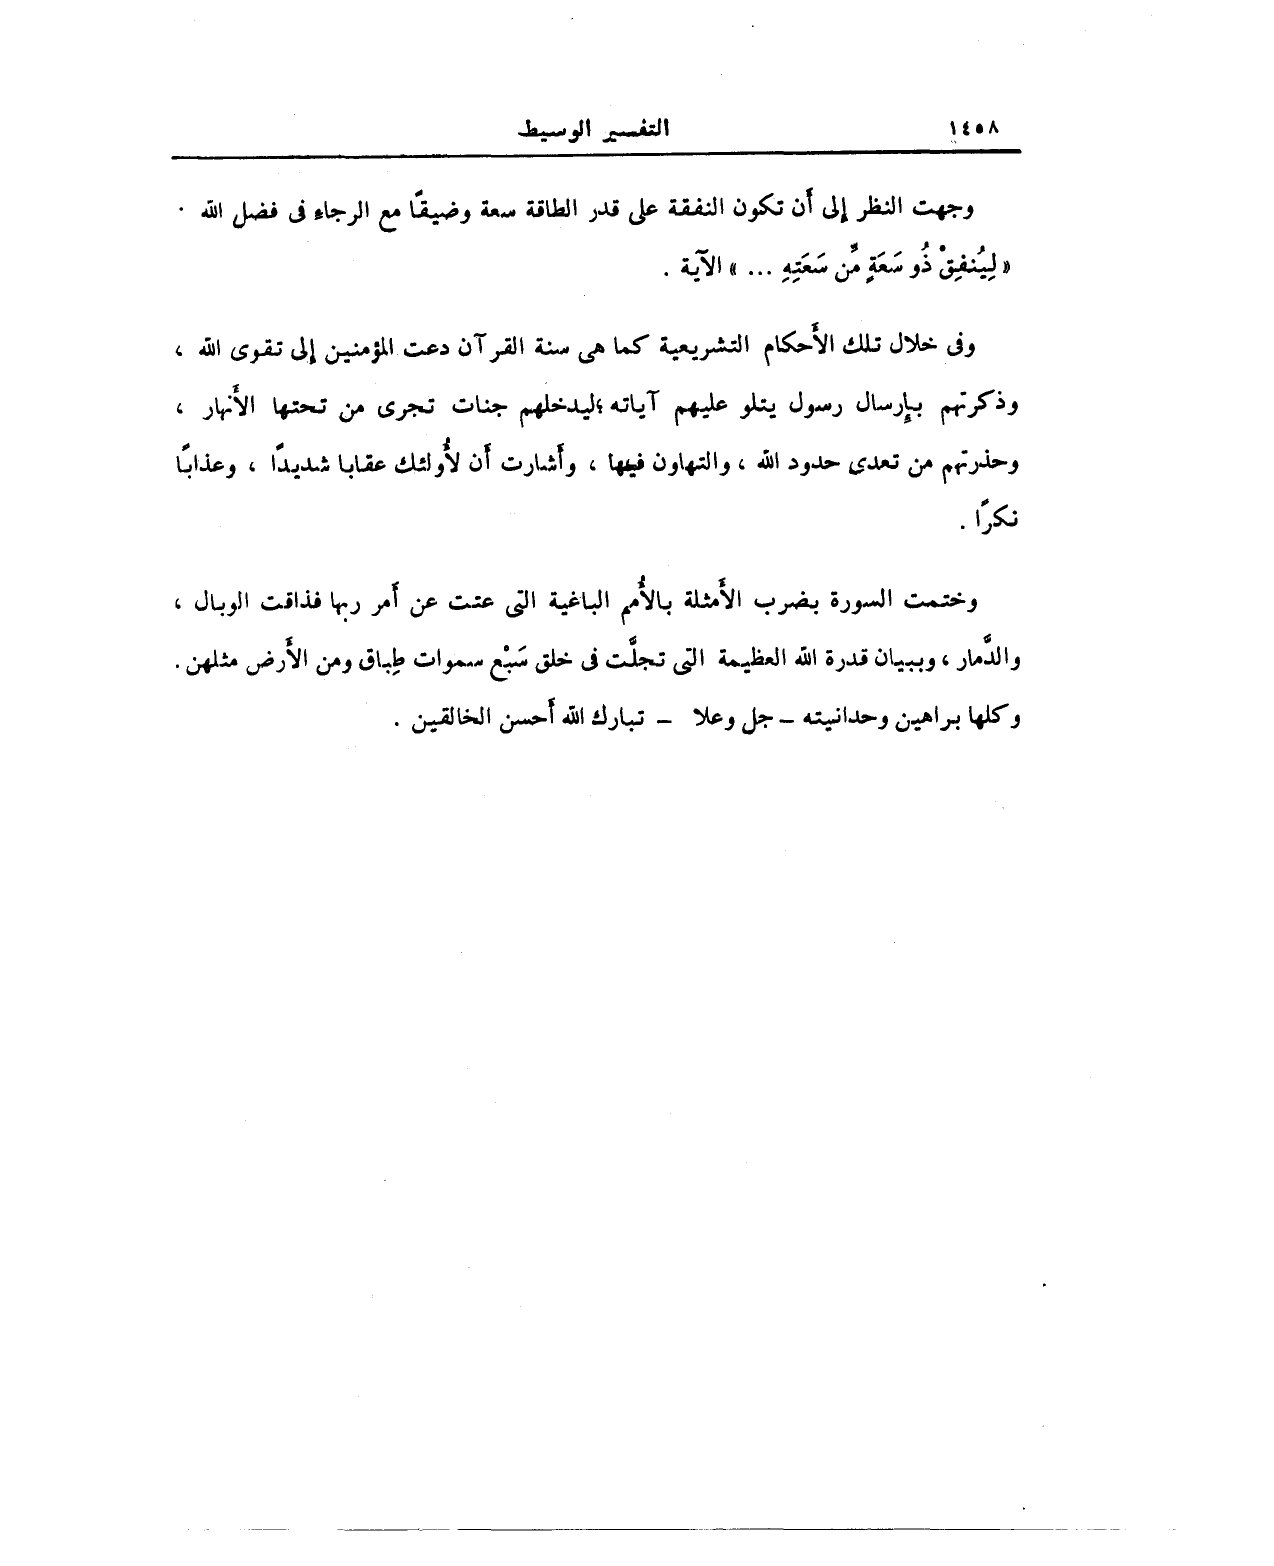 ١٤٥٨
التفسير الوسيط
وجهت النظر إلى أَن تكون النفقة على قدر الطاقة سعة وضيقًا مع الرجاء فى فضل الله .
« لِيُنفِقْ ذُو سَعَةٍ مِّن سَعَتِهِ ... » الآية .
وفى خلال تلك الأَحكام التشريعية كما هى سنة القرآن دعت المؤمنين إلى تقوى الله ،
وذكرتهم بإِرسال رسول يتلو عليهم آياته ؛ليدخلهم جنات تجرى من تحتها الأَنهار ،
وحذرتهم من تعدى حدود الله ، والتهاون فيها ، وأَشارت أَن لأُولئك عقابا شديدًا ، وعذابًا
نكرًا .
وختمت السورة بضرب الأَمثلة بالأُمم الباغية التى عتت عن أَمر ربها فذاقت الوبال ،
والدَّمار ، وببيان قدرة الله العظيمة التى تجلَّت فى خلق سَبْع سموات طِباق ومن الأَرض مثلهن .
وكلها براهين وحدانيته – جل وعلا – تبارك الله أَحسن الخالقين .